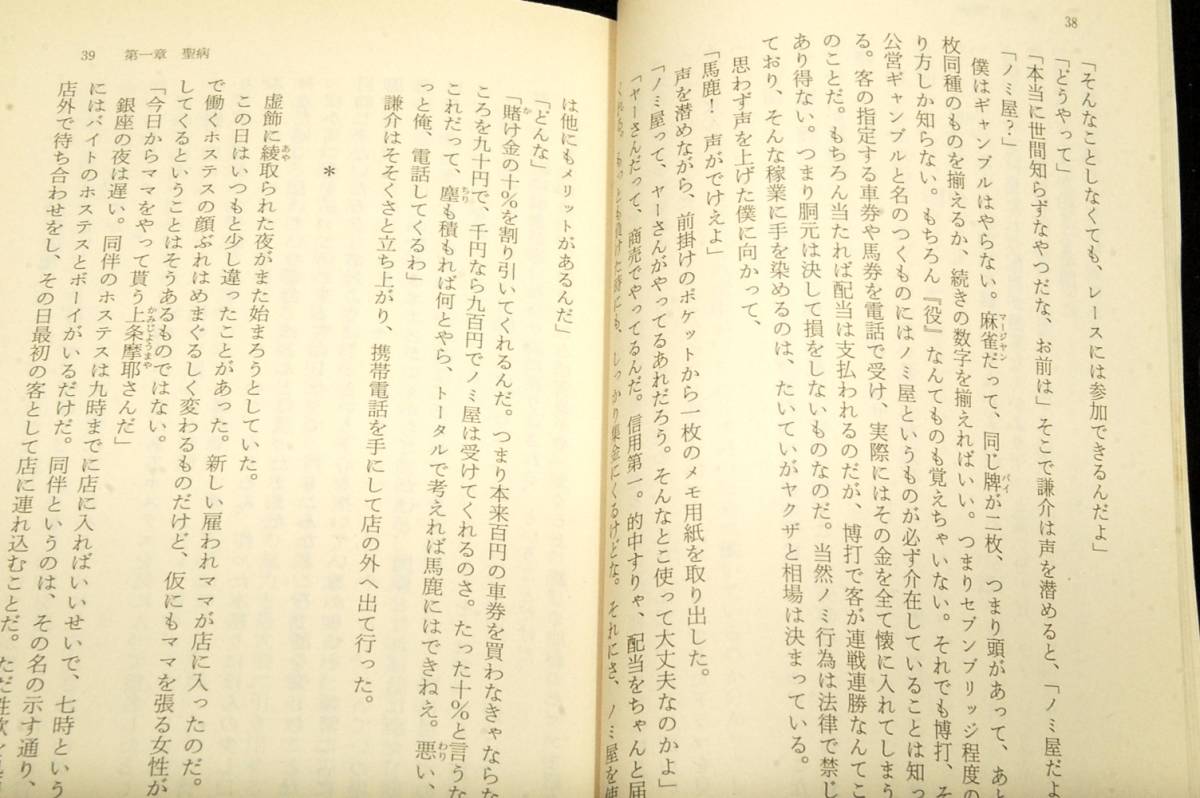 38
「そんなことしなくても、レースには参加できるんだよ」
「どうやって」
「本当に世間知らずなやつだな、お前は」そこで謙介は声を潜めると、「ノミ屋だよ
「ノミ屋？」
僕はギャンブルはやらない。麻雀だって、同じ牌が二枚、つまり頭があって、あと
枚同種のものを揃えるか、続きの数字を揃えればいい。つまりセブンブリッジ程度の
り方しか知らない。もちろん『役』なんてものも覚えちゃいない。それでも博打、そ
公営ギャンブルと名のつくものにはノミ屋というものが必ず介在していることは知っ
る。客の指定する車券や馬券を電話で受け、実際にはその金を全て懐に入れてしまう
のことだ。もちろん当たれば配当は支払われるのだが、博打で客が連戦連勝なんてこ
あり得ない。つまり胴元は決して損をしないものなのだ。当然ノミ行為は法律で禁じ
ており、そんな稼業に手を染めるのは、たいていがヤクザと相場は決まっている。
思わず声を上げた僕に向かって、
「馬鹿！　声がでけえよ」
声を潜めながら、前掛けのポケットから一枚のメモ用紙を取り出した。
「ノミ屋って、ヤーさんがやってるあれだろう。そんなとこ使って大丈夫なのかよ」
「ヤーさんだって、商売でやってるんだ。信用第一。的中すりゃ、配当をちゃんと届
しっかり集金にくるけどな。それにさ、ノミ屋を使
39　第一章　聖病
は他にもメリットがあるんだ」
「どんな」
「賭け金の十％を割り引いてくれるんだ。つまり本来百円の車券を買わなきゃならな
ころを九十円で、千円なら九百円でノミ屋は受けてくれるのさ。たった十％と言うな
これだって、塵も積もれば何とやら、トータルで考えれば馬鹿にはできねえ。悪い、
っと俺、電話してくるわ」
謙介はそそくさと立ち上がり、携帯電話を手にして店の外へ出て行った。
＊
虚飾に綾取られた夜がまた始まろうとしていた。
この日はいつもと少し違ったことがあった。新しい雇われママが店に入ったのだ。
で働くホステスの顔ぶれはめまぐるしく変わるものだけど、仮にもママを張る女性が
してくるということはそうあるものではない。
「今日からママをやって貰う上条摩耶さんだ」
銀座の夜は遅い。同伴のホステスは九時までに店に入ればいいせいで、七時という
にはバイトのホステスとボーイがいるだけだ。同伴というのは、その名の示す通り、
店外で待ち合わせをし、その日最初の客として店に連れ込むことだ。ただ性欲を